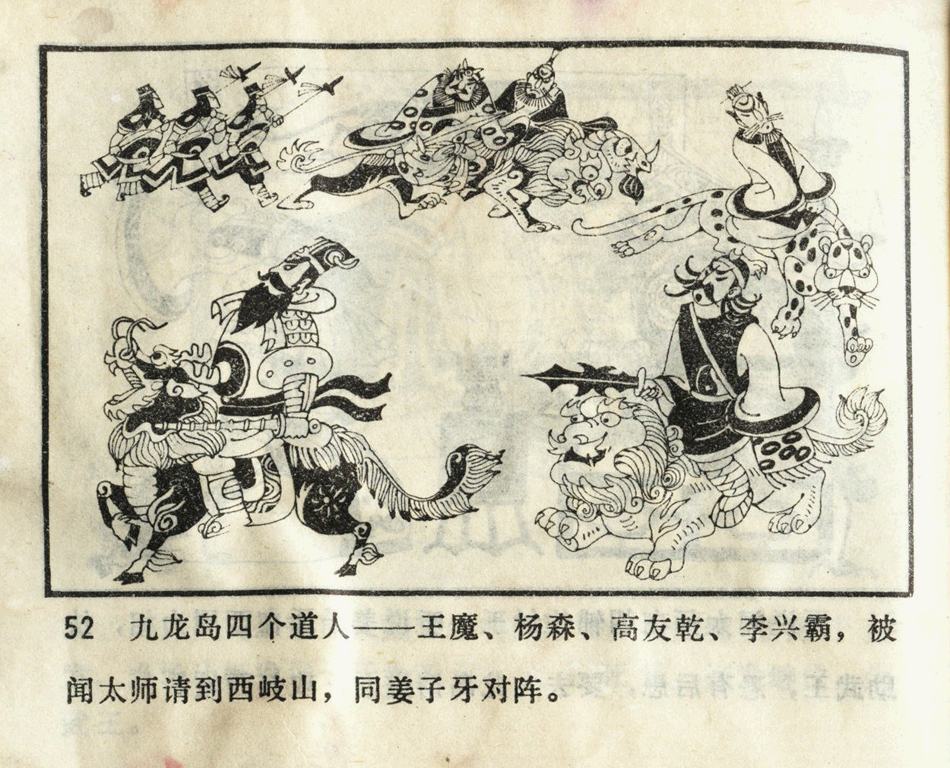 52 九龙岛四个道人——王魔、杨森、高友乾、李兴霸，被
闻太师请到西岐山，同姜子牙对阵。